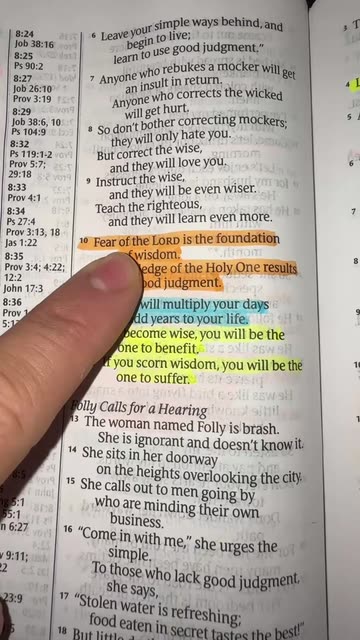 8:24
Job 38:16
8:25
Ps 90:2
8:27
Job 26:10
Prov 3:19
8:29
Job 38:6, 10
Ps 104:9
8:32
Ps 119:1-2
Prov 5:7;
29:18
8:33
Prov 4:1
8:34
Ps 27:4
Prov 3:13, 18
Jas 1:22
8:35
Prov 3:4; 4:22;
12:2
John 17:3
8:36
6 Leave your simple ways behind, and
begin to live;
learn to use good judgment."
7 Anyone who rebukes a mocker will get
an insult in return.
Anyone who corrects the wicked
will get hurt.
8 So don't bother correcting mockers;
they will only hate you.
But correct the wise,
and they will love you.
9 Instruct the wise,
and they will be even wiser.
Teach the righteous,
and they will learn even more.
10 Fear of the LORD is the foundation
of wisdom.
edge of the Holy One results
good judgment.
will multiply your days
dd years to your life.
become wise, you will be the
one to benefit.
f you scorn wisdom, you will be the
one to suffer.
Folly Calls for a Hearing
13 The woman named Folly is brash.
She is ignorant and doesn't know it.
14 She sits in her doorway
on the heights overlooking the city.
15 She calls out to men going by
who are minding their own
business.
16 "Come in with me," she urges the
simple.
To those who lack good judgment,
she says,
17 "Stolen water is refreshing;
food eaten in secret tastes the best!"
18 But little